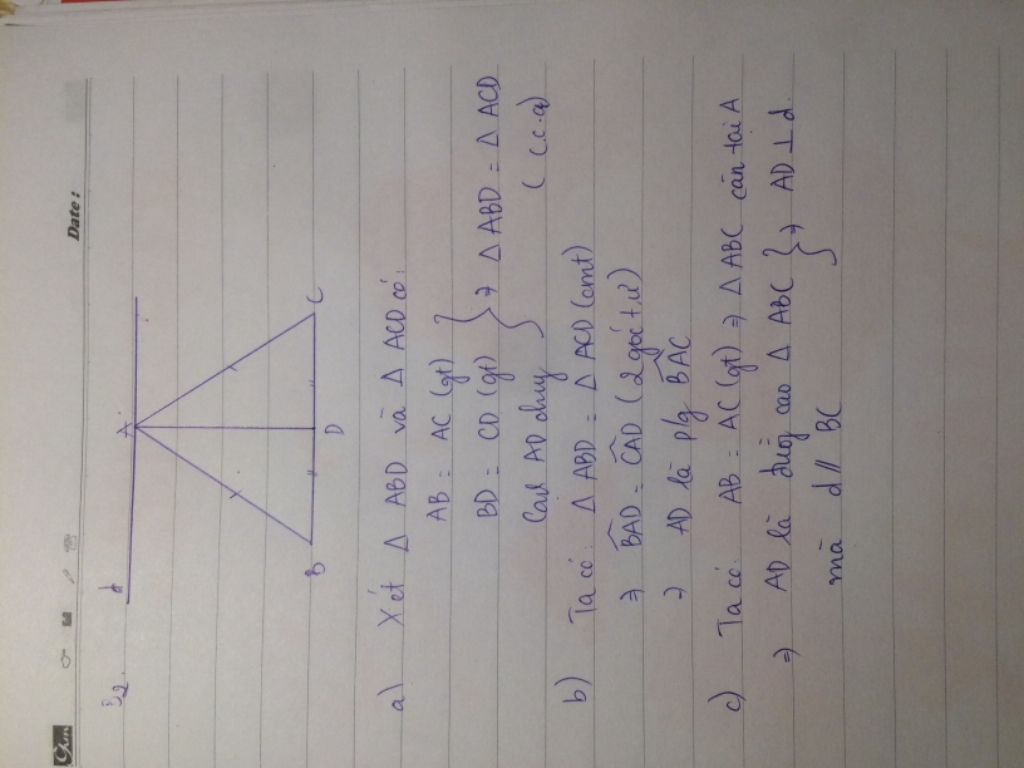 Date:
B2.
d
A
B
D
C
a) Xét Δ ABD và Δ ACD có:
AB = AC (gt)
BD = CD (gt) } => Δ ABD = Δ ACD
Cạnh AD chung (c.c.c)
b) Ta có: Δ ABD = Δ ACD (cmt)
=> BAD = CAD (2 góc t/ứ)
=> AD là p/g BAC
c) Ta có: AB = AC (gt) => Δ ABC cân tại A
=> AD là đường cao Δ ABC } => AD ⊥ d.
mà d // BC